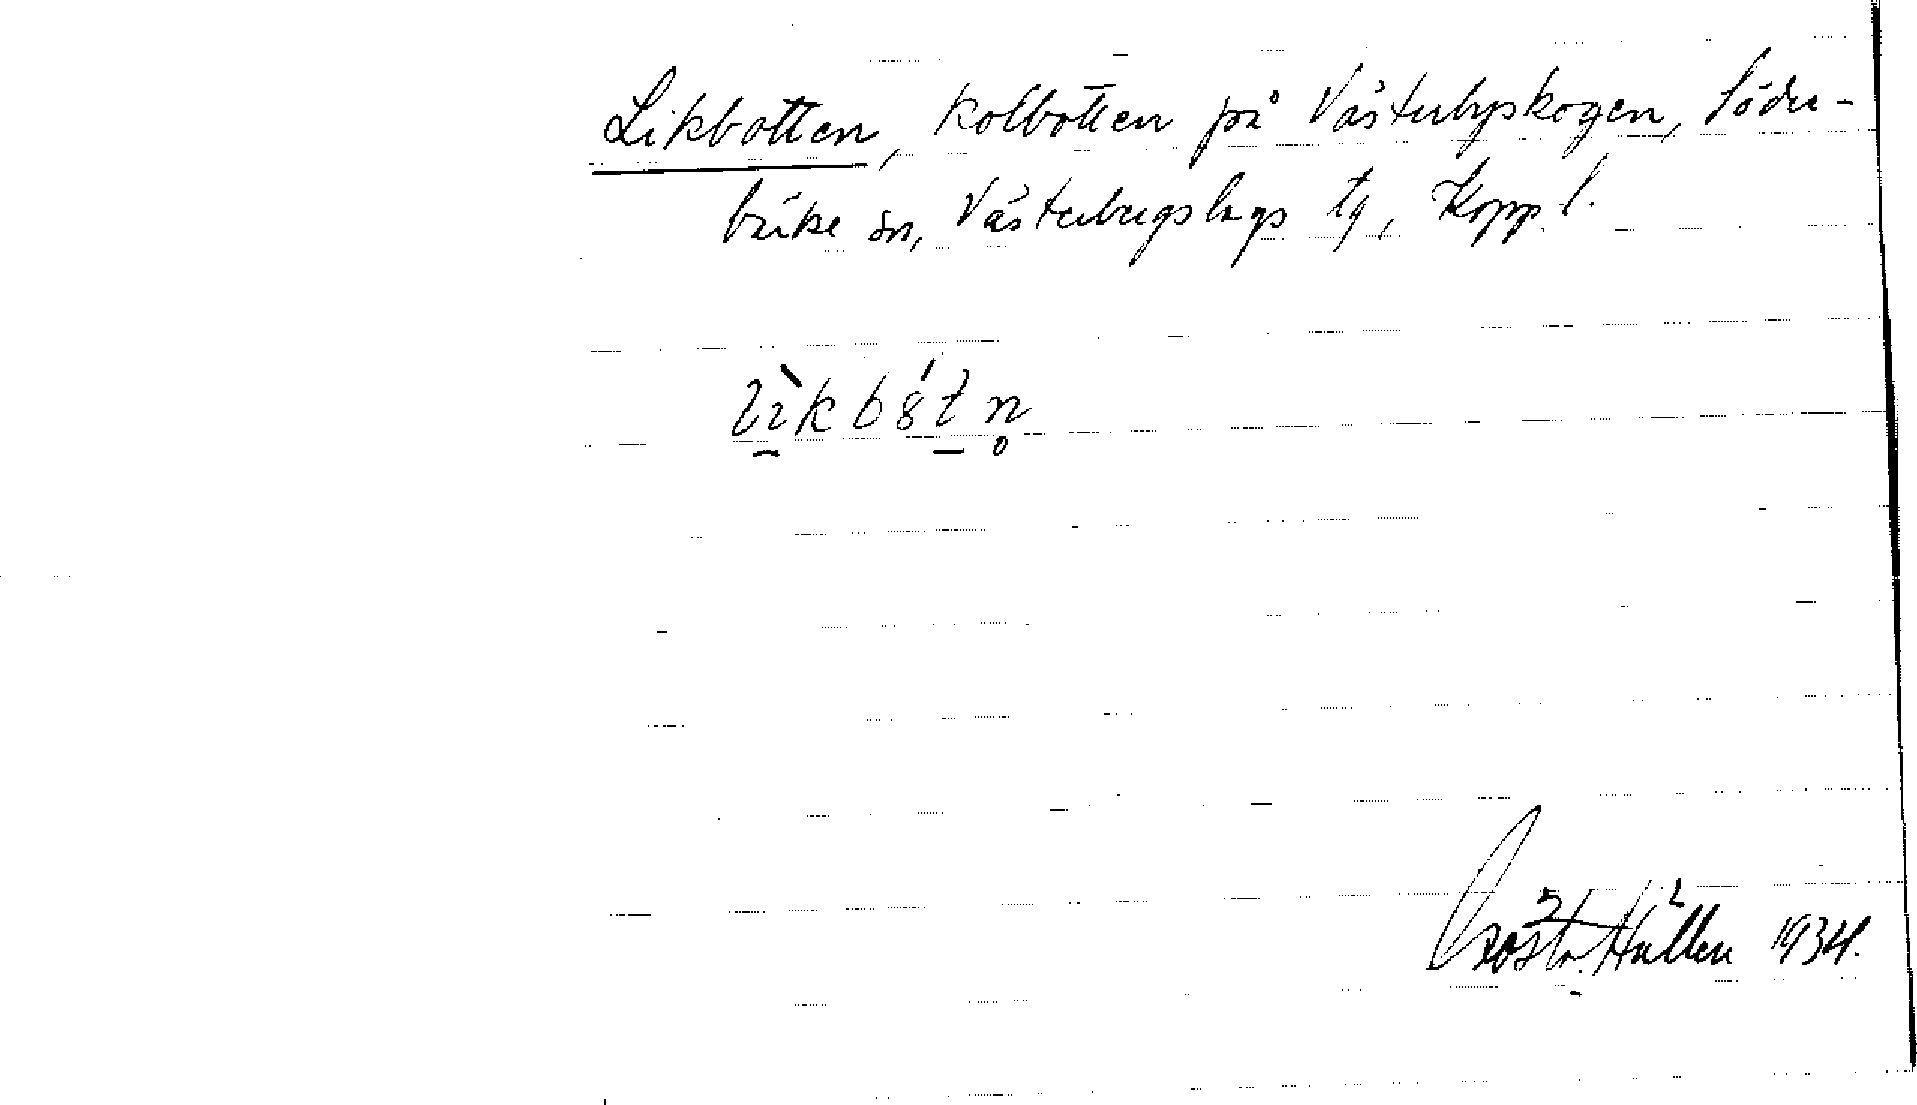 Likbotten, kolbotten på Västerbyskogen, Söder-
bärke sn, Västerbergslags tg, Kopp. l.
lìkb8́tn̥
Gösta Hällen 1934.